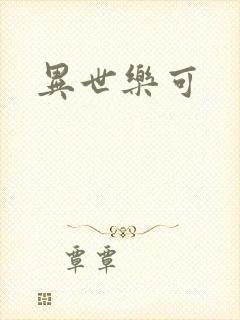 異世樂可
覃覃